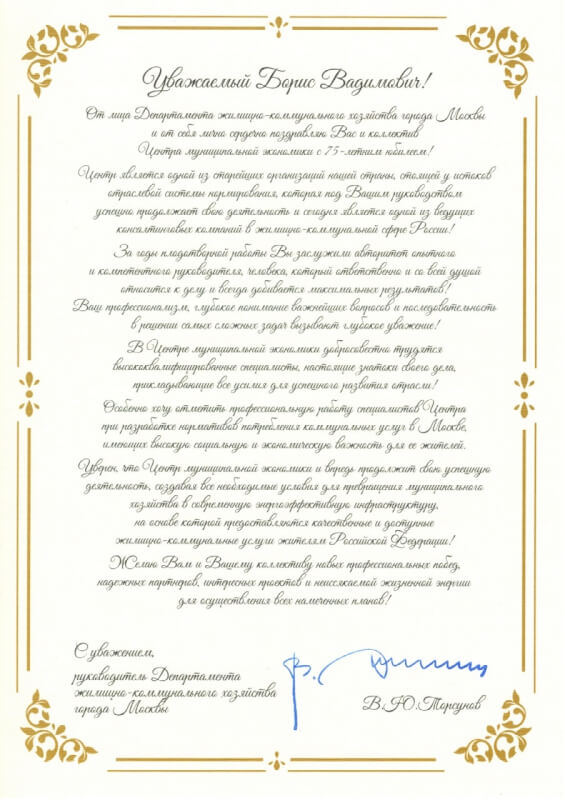 Уважаемый Борис Вадимович!
От лица Департамента жилищно-коммунального хозяйства города Москвы
и от себя лично сердечно поздравляю Вас и коллектив
Центра муниципальной экономики с 75-летним юбилеем!
Центр является одной из старейших организаций нашей страны, стоящей у истоков
отраслевой системы нормирования, которая под Вашим руководством
успешно продолжает свою деятельность и сегодня является одной из ведущих
консалтинговых компаний в жилищно-коммунальной сфере России!
За годы плодотворной работы Вы заслужили авторитет опытного
и компетентного руководителя, человека, который ответственно и со всей душой
относится к делу и всегда добивается максимальных результатов!
Ваш профессионализм, глубокое понимание важнейших вопросов и последовательность
в решении самых сложных задач вызывают глубокое уважение!
В Центре муниципальной экономики добросовестно трудятся
высококвалифицированные специалисты, настоящие знатоки своего дела,
прикладывающие все усилия для успешного развития отрасли!
Особенно хочу отметить профессиональную работу специалистов Центра
при разработке нормативов потребления коммунальных услуг в Москве,
имеющих высокую социальную и экономическую важность для ее жителей.
Уверен, что Центр муниципальной экономики и впредь продолжит свою успешную
деятельность, создавая все необходимые условия для превращения муниципального
хозяйства в современную энергоэффективную инфраструктуру,
на основе которой предоставляются качественные и доступные
жилищно-коммунальные услуги жителям Российской Федерации!
Желаю Вам и Вашему коллективу новых профессиональных побед,
надежных партнеров, интересных проектов и неиссякаемой жизненной энергии
для осуществления всех намеченных планов!
С уважением,
руководитель Департамента
жилищно-коммунального хозяйства
города Москвы
В.Ю.Торсунов